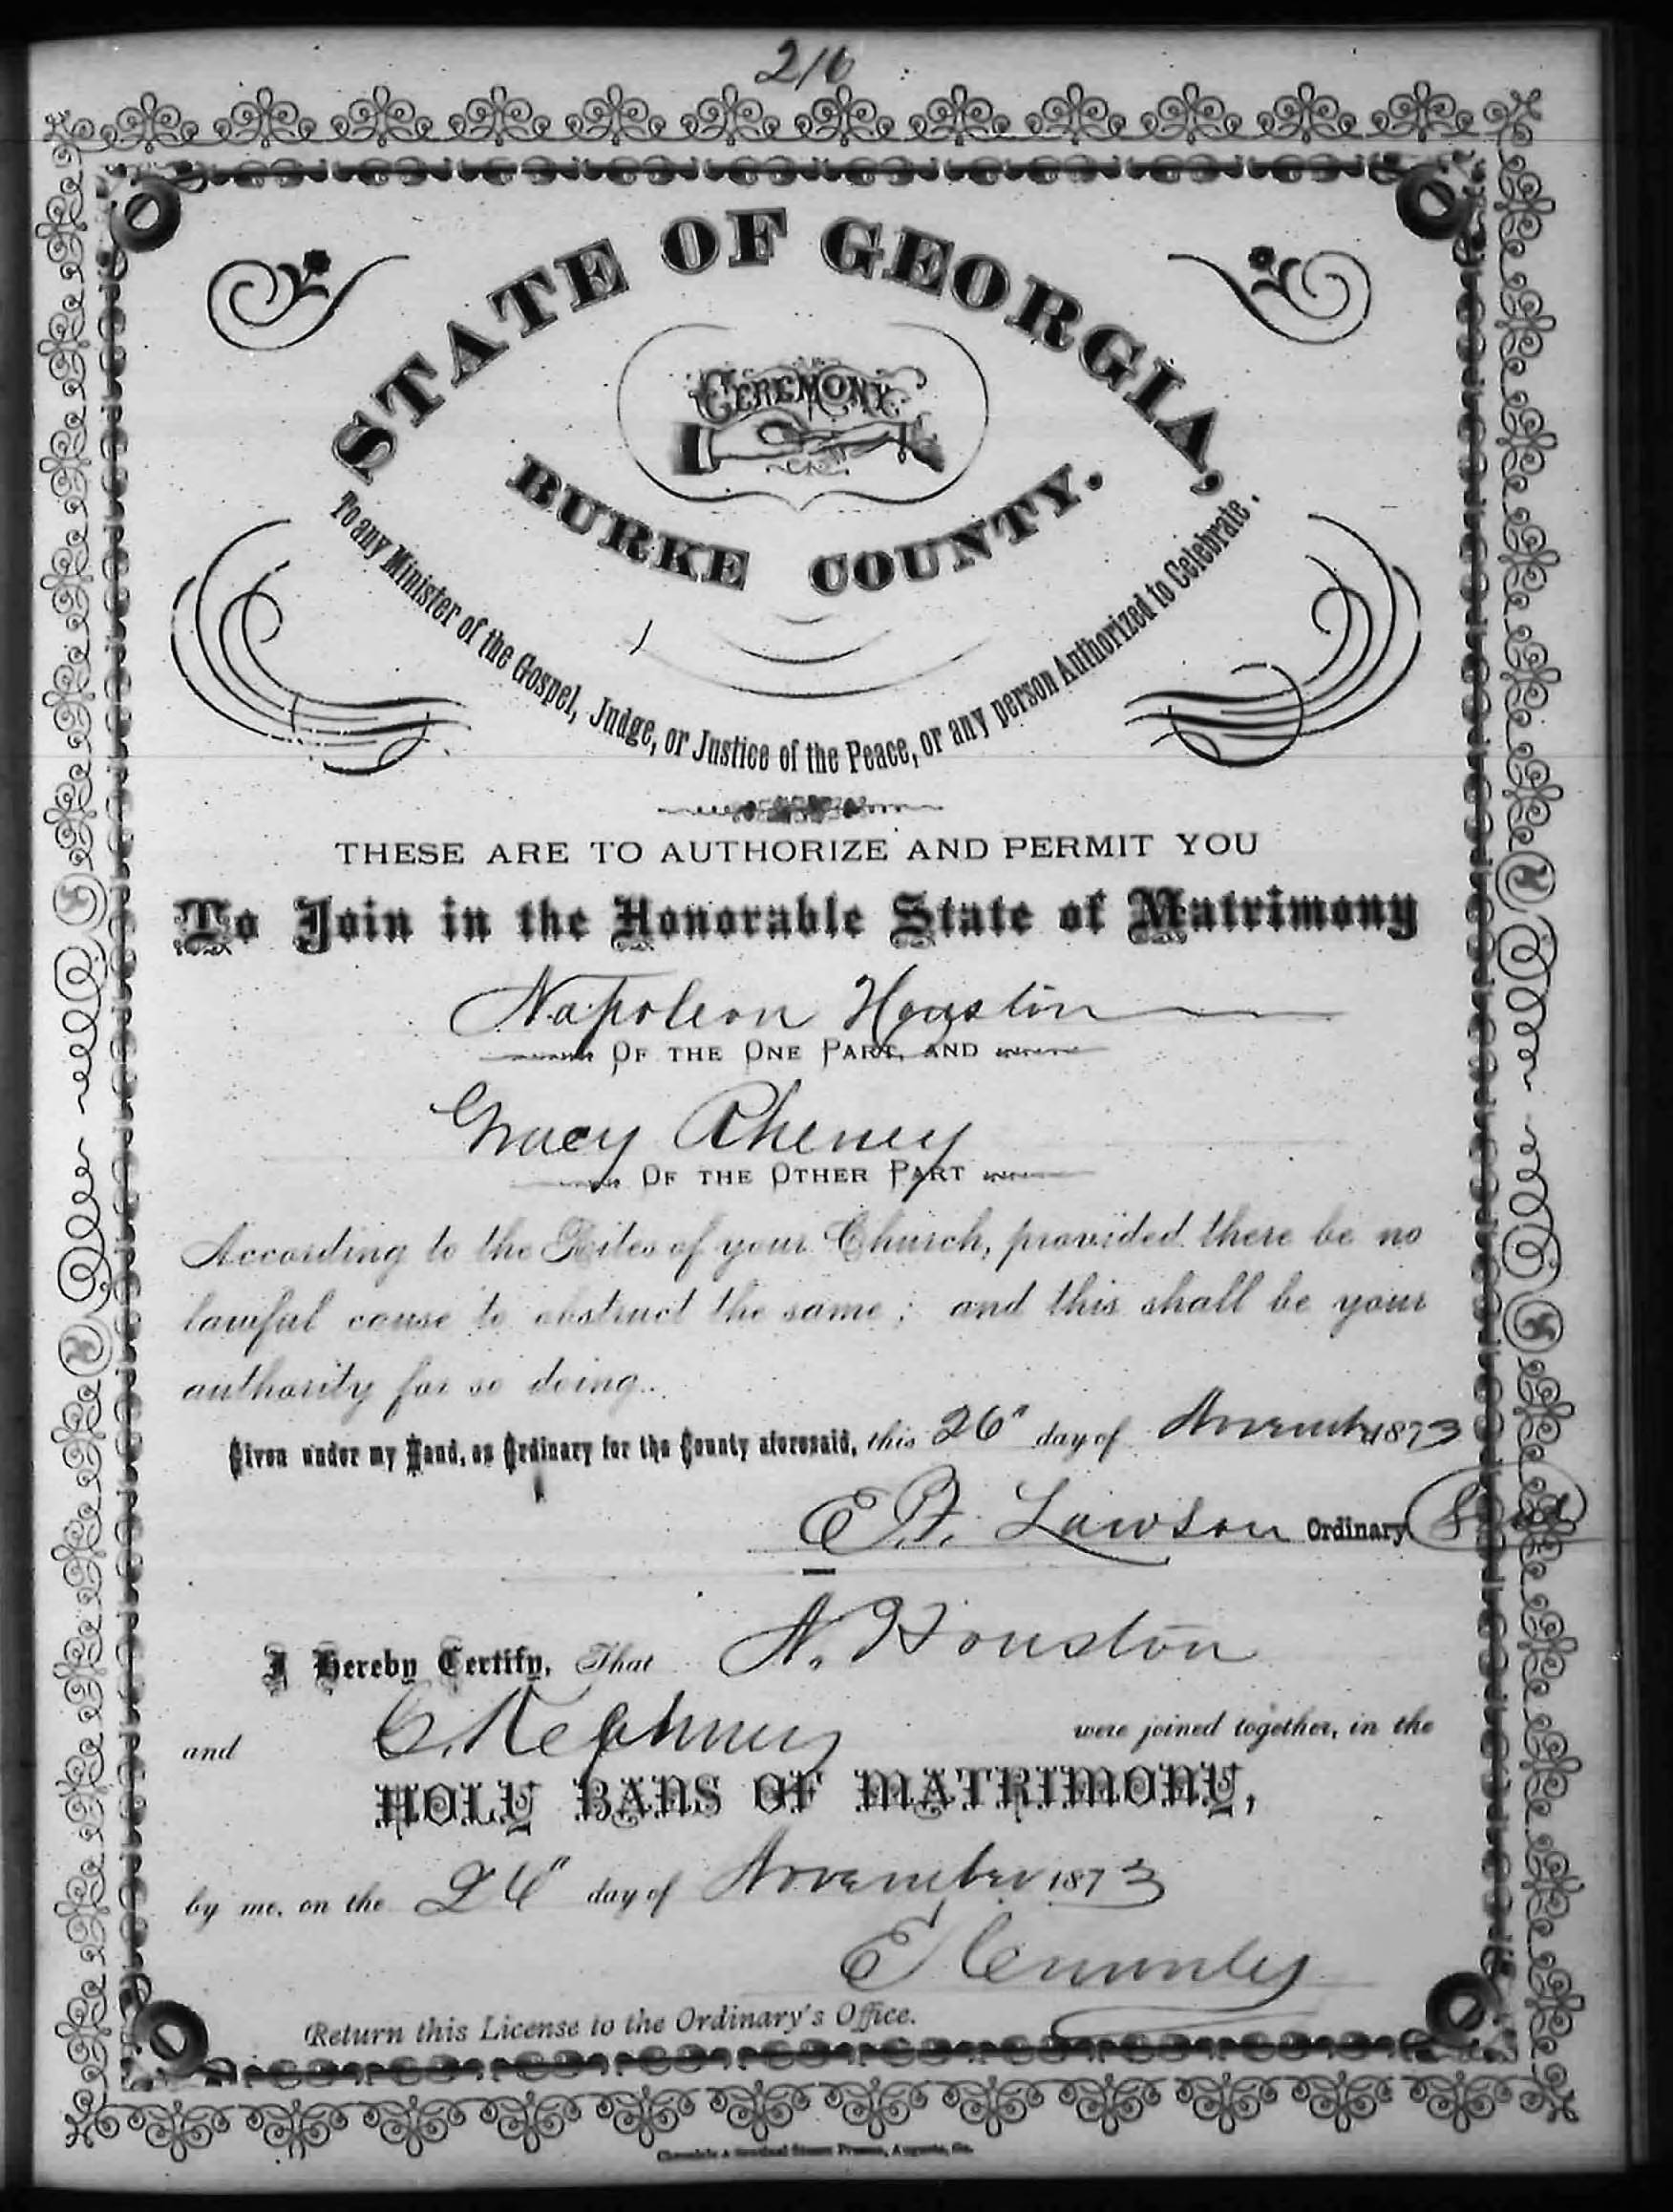 216
STATE OF GEORGIA,
CEREMONY
BURKE COUNTY.
To any Minister of the Gospel, Judge, or Justice of the Peace, or any person Authorized to Celebrate.
THESE ARE TO AUTHORIZE AND PERMIT YOU
To Join in the Honorable State of Matrimony
Napoleon Houston
OF THE ONE PART, AND
Gracy Rheney
OF THE OTHER PART
According to the Rites of your Church, provided there be no
lawful cause to obstruct the same; and this shall be your
authority for so doing.
Given under my Hand, as Ordinary for the County aforesaid, this 26" day of November 1873
E. F. Lawson Ordinary Seal
I Hereby Certify, That N. Houston
and G. were joined together, in the
HOLY BANS OF MATRIMONY,
by me, on the 26" day of November 1873
E
Return this License to the Ordinary's Office.
Chronicle & Sentinel Steam Presses, Augusta, Ga.